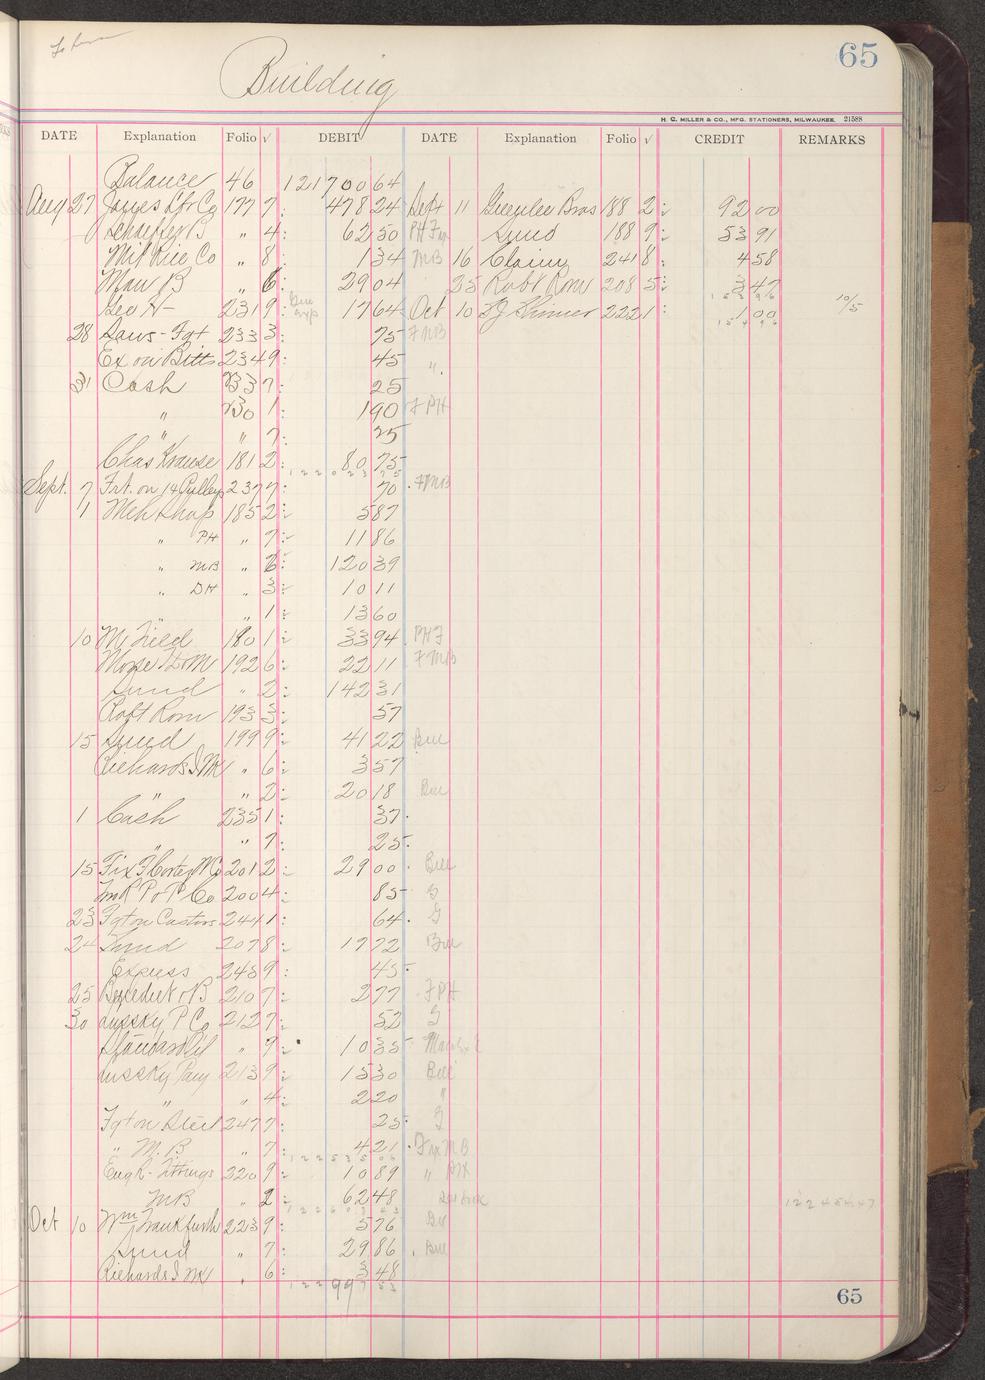 65
Building
H. G. MILLER & CO., MFG. STATIONERS, MILWAUKEE. 21588
DATE Explanation Folio √ DEBIT DATE Explanation Folio √ CREDIT REMARKS
Balance 46 121700 64
Aug 27 Jones Lbr Co 177 7 478 24 Sept 11 Greenlee Bros 188 2 92 00
Schaeffer B " 4 62 50 PH Sund 188 9 53 91
Mil Rice Co " 8 1 34 MB 16 Claim 241 8 4 58
Man B " 6 29 04 25 Robt Rom 208 5 3 47
Geo H 231 9 17 64 Oct 10 Skinner 222 1 1 00 10/5
28 Saws - Fgt 233 3 75 FMB
Ex on Bitts 234 9 45 "
31 Cash 233 7 25
" 230 1 1 90 FPH
" " 7 25
Chas Krause 181 2 80 75
Sept. 7 Frt. on 14 Pulleys 237 7 70 FMB
1 Meh Shop 185 2 5 87
" PH " 7 11 86
" MB " 6 120 39
" DH " 3 10 11
" 1 13 60
10 M Field 180 1 33 94 PHF
Morse 192 6 22 11 FMB
Sund " 2 142 31
Robt Rom 193 3 57
15 Sund 199 9 41 22 Bill
Richards I Wk " 6 3 57
" " 2 20 18 Bill
1 Cash 235 1 37
" " 7 25
15 201 2 29 00 Bill
200 4 85 G
23 Fgt on Castors 244 1 64 G
24 Sund 207 8 19 72 Bill
Express 245 9 45
25 Benedict & B 210 7 2 77 FPH
30 Lussky P Co 212 7 52 G
Standard Oil " 9 10 35
Lussky Pany 213 9 15 30 Bill
" " 4 2 20 "
Fgt on Steel 247 7 25 G
" M.B " 7 4 21 MB
Eng R - Fittings 220 9 10 89 "
MB " 2 62 48
Oct 10 Wm Frankfurth 223 9 5 76
Sund " 7 29 86 Bill
Richards I Wk " 6 3 48
65